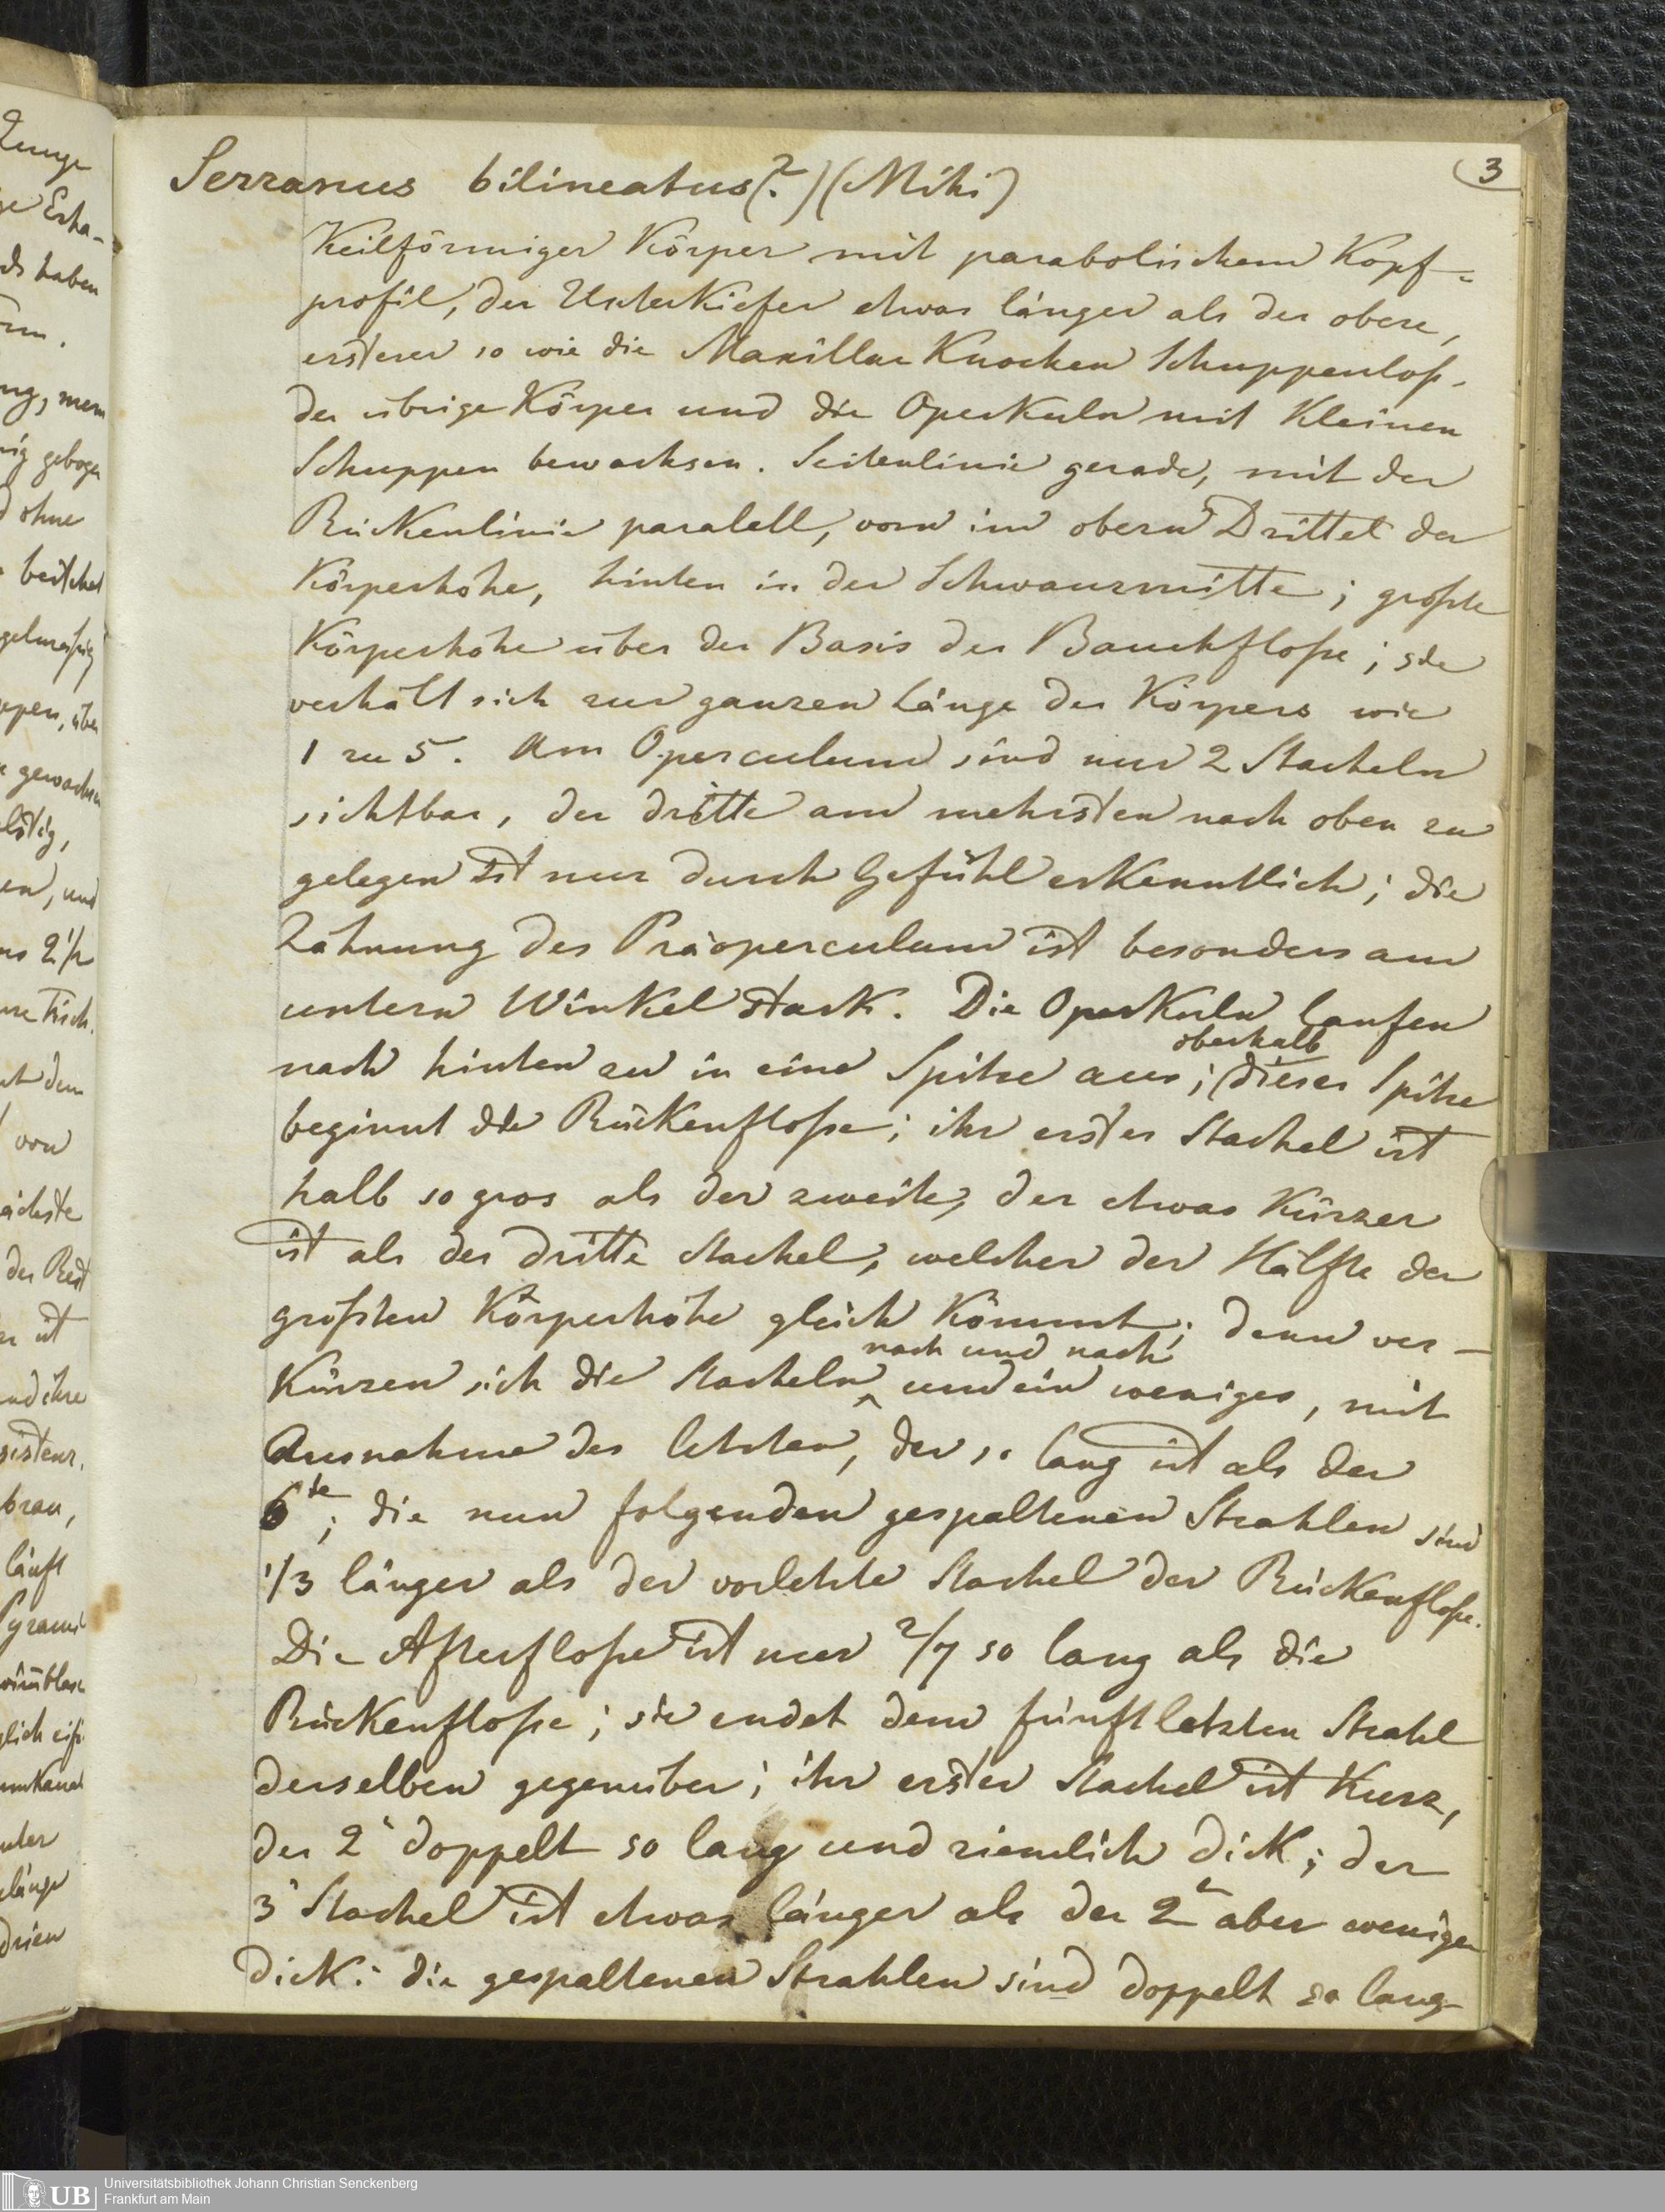 3
Serranus bilineatus(?) (Mihi)
Keilförmiger Körper mit parabolischem Kopf=
profil, der Unterkiefer etwas länger als der obere,
ersterer so wie die Maxillar Knochen Schuppenlos,
der übrige Körper und die Operkuln mit kleinen
Schuppen bewachsen. Seitenlinie gerade, mit der
Rückenlinie paralell, vorn im obern Drittel der
Körperhöhe, hinten in der Schwanzmitte; größte
Körperhöhe über der Basis der Bauchfloße; sie
verhält sich zur ganzen Länge des Körpers wie
1 zu 5. Am Operculum sind nur 2 Stacheln
sichtbar, der dritte am mehrsten nach oben zu
gelegen ist nur durch Gefühl erkenntlich; die
Zähnung des Präoperculum ist besonders am
untern Winkel stark. Die Operkuln laufen
nach hinten zu in eine Spitze aus; oberhalb dieser Spitze
beginnt die Rückenfloße; ihr erster Stachel ist
halb so gros als der zweite, der etwas kürzer
ist als der dritte Stachel, welcher der Hälfte der
größten Körperhöhe gleich kömmt; denn ver-
kürzen sich die Stacheln nach und nach um ein weniges, mit
Ausnahme des letzten, der so lang ist als der
6te; die nun folgenden gespaltenen Strahlen sind
1/3 länger als der vorletzte Stachel der Rückenfloße.
Die Afterfloße ist nur 2/7 so lang als die
Rückenfloße; sie endet dem fünftletzten Strahl
derselben gegenüber; ihr erster Stachel ist kurz,
der 2r doppelt so lang und ziemlich dick; der
3r Stachel ist etwas länger als der 2te aber weniger
dick: die gespaltenen Strahlen sind doppelt so lang
Zunge
haben
gebogen
ohne
über
und
von
der Rest
ist
und ihre
läuft
Universitätsbibliothek Johann Christian Senckenberg
Frankfurt am Main
UB